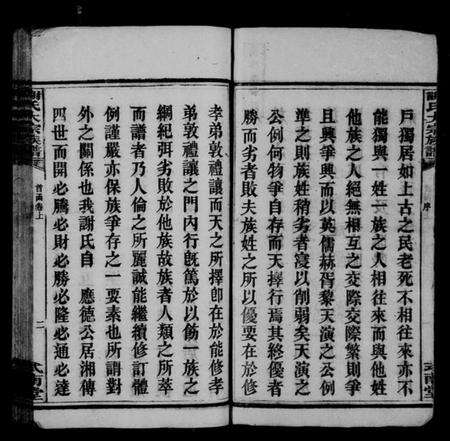 戶獨居如上古之民老死不相往來亦不
能獨與一姓一族之人相往來而與他姓
他族之人絕無相互之交際交際繁則爭
且興爭興而以英儒赫胥黎天演之公例
準之則族姓稍劣者寖以削弱矣天演之
公例何物爭自存而天擇行焉其終優者
勝而劣者敗夫族姓之所以優要在於修
孝弟敦禮讓而天之所擇卽在於能修孝
弟敦禮讓之門內行旣篤於以飭一族之
綱紀弭劣敗於他族故族者人類之所萃
而譜者乃人倫之所麗誠能繼續修訂體
例謹嚴亦保族爭存之一要素也所謂對
外之關係也我謝氏自 應德公居湘傳
四世而開必騰必財必勝必隆必通必達
謝氏大宗族譜
首函卷上
二